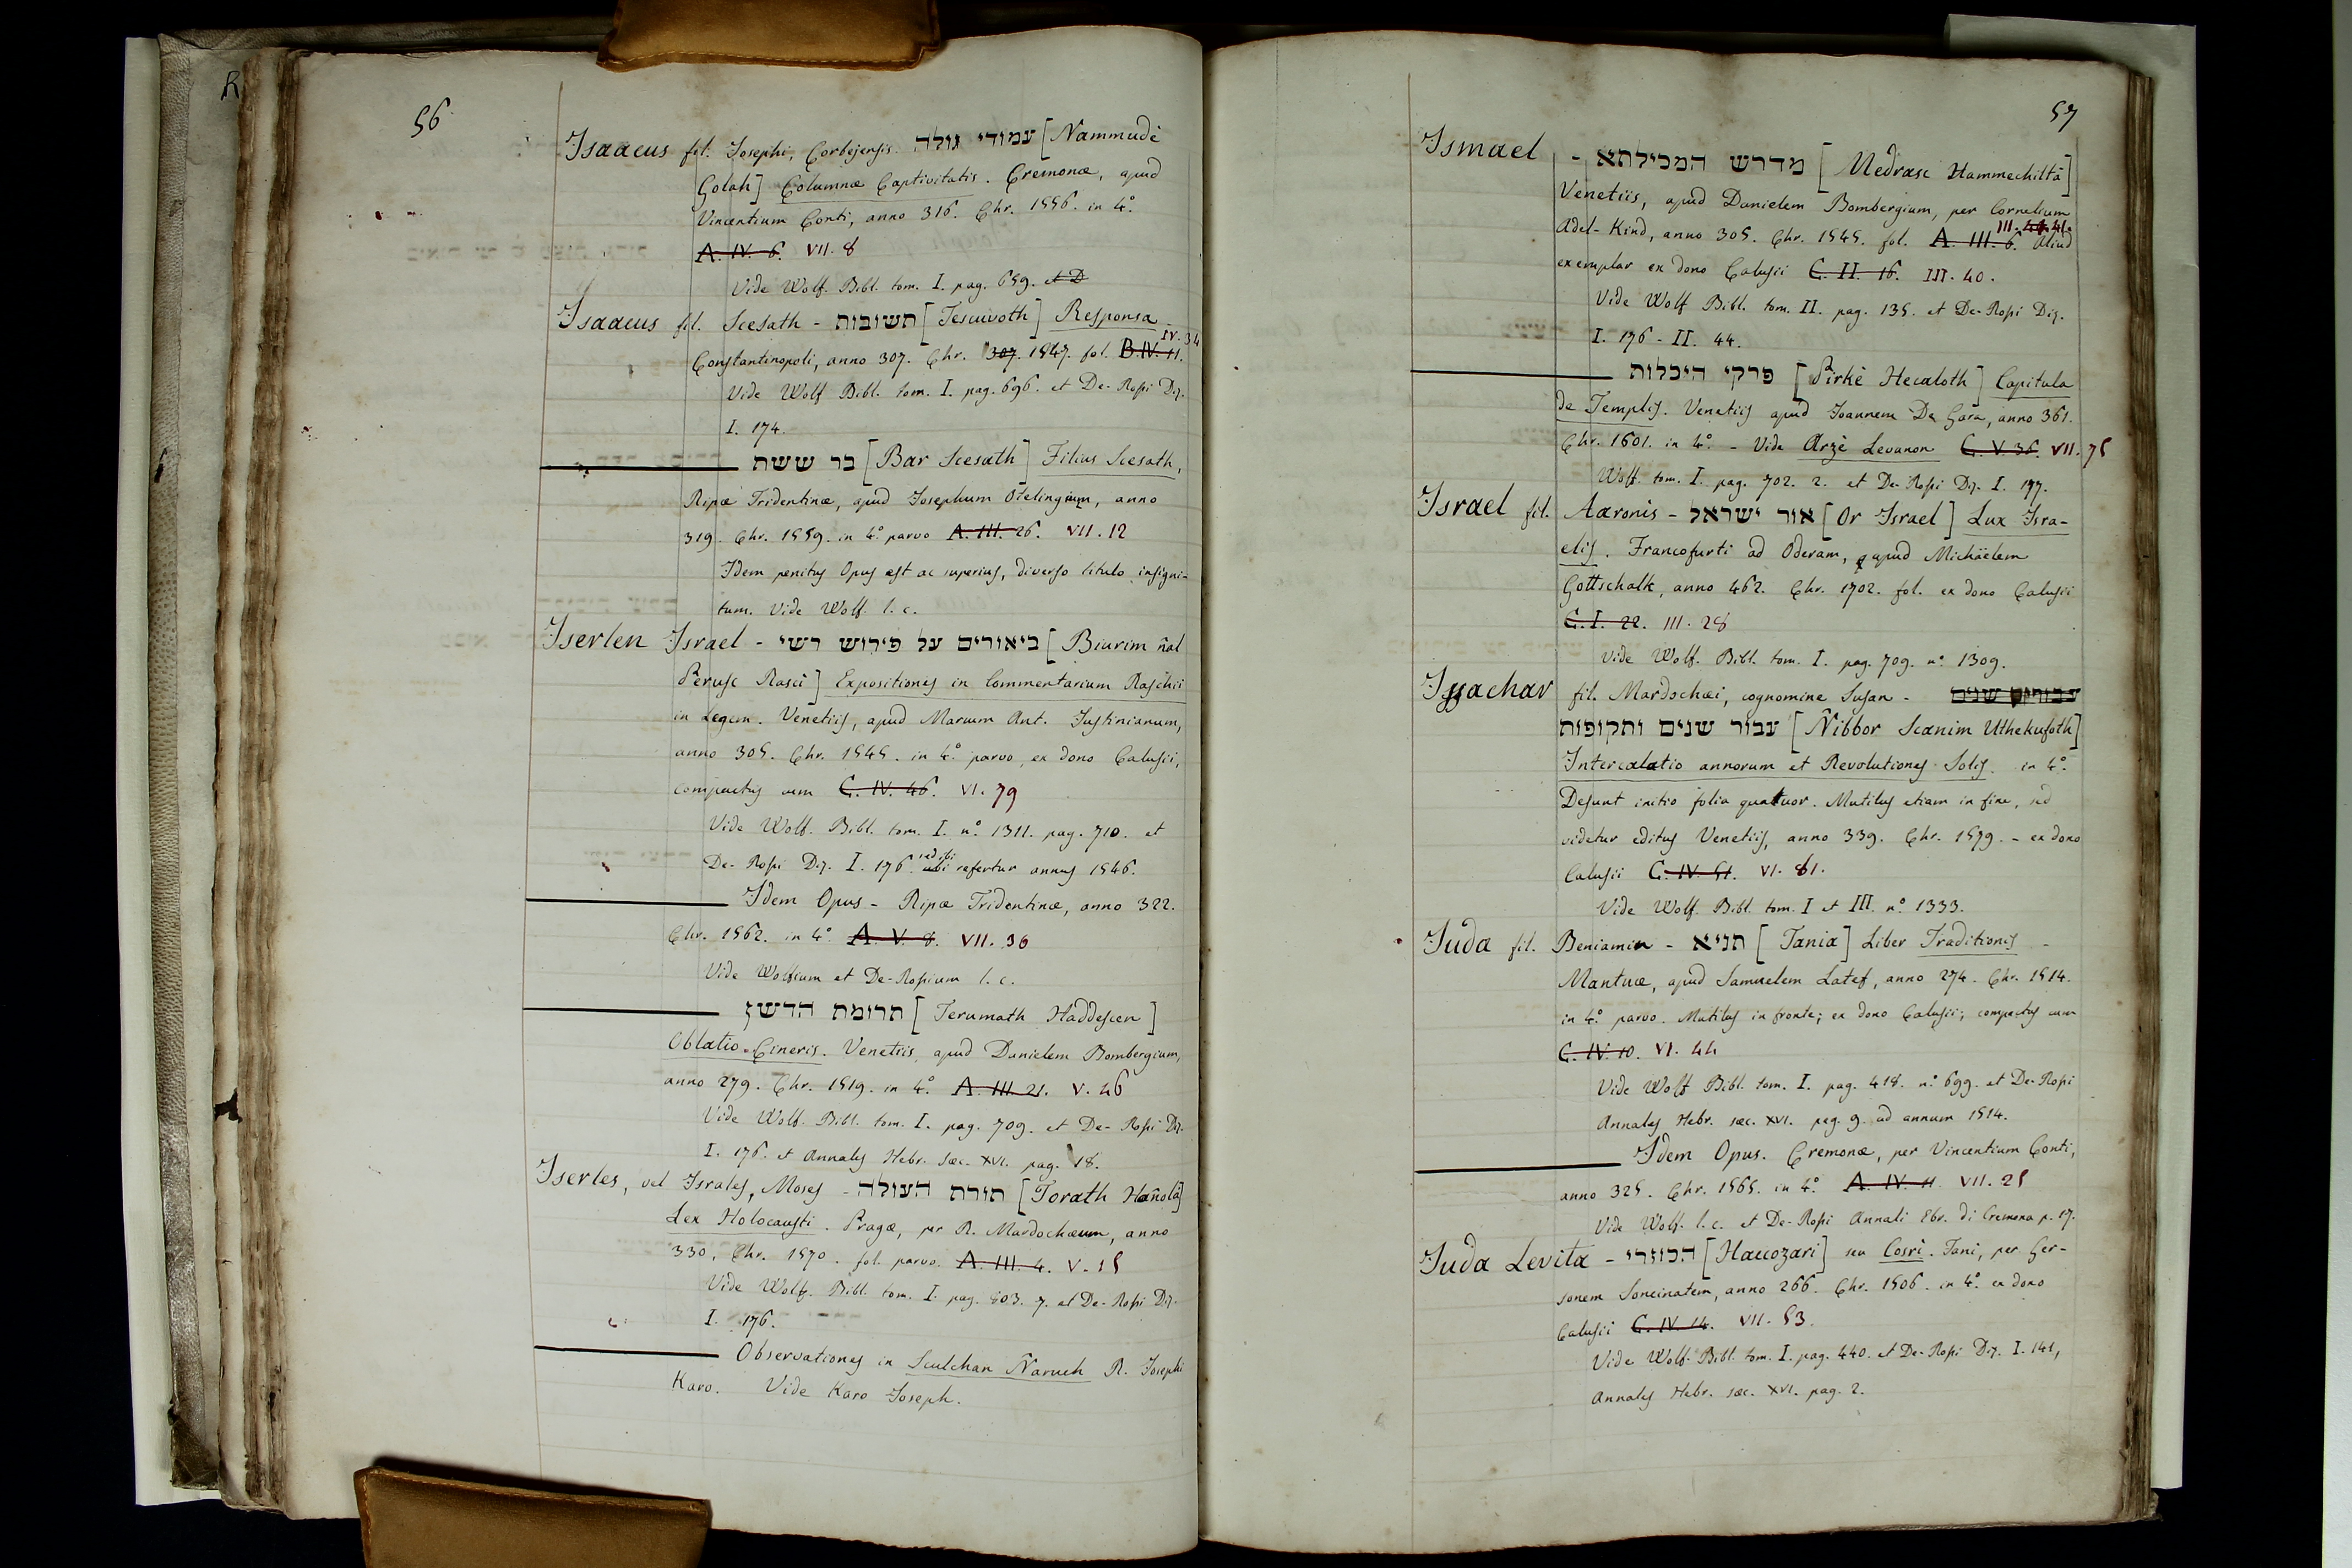 56.
Isaacus fil. Josephi, Corbejensis. עמודי גולה [Nammudè
Golah] Columnæ Captivitatis. Cremonæ, apud
Vincentium Conti, anno 316. Chr. 1556. in 4.º
A. IV. 6. VII. 8
Vide Wolf. Bibl. tom. I. pag. 659. et D
Isaacus fil. Scesath - תשובות [Tesciuvoth] Responsa -
IV. 34
Constantinopoli, anno 307. Chr. 307. 1547. fol. B. IV. 11.
Vide Wolf Bibl. tom. I. pag. 696. et De-Rossi Diz.
I. 174.
בר ששת [Bar Scesath] Filius Scesath,
Ripæ Tridentinæ, apud Josephum Otelingium, anno
319. Chr. 1559. in 4.º parvo A. III. 26. VII. 12
Idem penitus Opus est ac superius, diverso titulo insigni-
tum. Vide Wolf. l. c.
Iserlen Israel - ביאורים על פירוש רשי [Biurim ñal
Perusc Rasci] Expositiones in Commentarium Raschii
in Legem. Venetiis, apud Marcum Ant. Justinianum,
anno 305. Chr. 1545. in 4.º parvo, ex dono Calusii,
compactus cum C. IV. 46. VI. 79
Vide Wolf. Bibl. tom. I. nº. 1311. pag. 710. et
De-Rossi Diz. I. 176. sed ibi ubi refertur annus 1546.
Idem Opus - Ripæ Tridentinæ, anno 322.
Chr. 1562. in 4.º A. V. 8. VII. 36
Vide Wolfium et De-Rossium l. c.
תרומת הדשן [Terumath Haddescen]
Oblatio Cineris. Venetiis, apud Danielem Bombergium,
anno 279. Chr. 1519. in 4.º A. III. 21. V. 46
Vide Wolf. Bibl. tom. I. pag. 709. et De-Rossi Diz.
I. 176. et Annales Hebr. sæc. XVI. pag. 18.
Iserles, vel Israles, Moses - תורת העולה [Torath Hañolà]
Lex Holocausti. Pragæ, per R. Mardochæum, anno
330, Chr. 1570. fol. parvo. A. III. 4. V. 15
Vide Wolf. Bibl. tom. I. pag. 803. 7. et De-Rossi Diz.
I. 176.
Observationes in Sculchan Ñaruch R. Josephi
Karo. Vide Karo Joseph.
57
Ismael - מדרש המכילתא [Medrasc Hammechiltà]
Venetiis, apud Danielem Bombergium, per Cornelium
III. 41.
Adel-Kind, anno 305. Chr. 1545. fol. A. III. 6. Aliud
exemplar ex dono Calusii C. II. 16. III. 40.
Vide Wolf Bibl. tom. II. pag. 135. et De-Rossi Diz.
I. 176 - II. 44.
פרקי היכלות [Pirkè Hecaloth] Capitula
de Templis. Venetiis apud Joannem De Gara, anno 361.
Chr. 1601. in 4.º - Vide Arzè Levanon C. V. 36. VII. 75
Wolf. tom. I. pag. 702. 2. et De-Rossi Diz. I. 177.
Israel fil. Aaronis - אור ישראל [Or Israel] Lux Isra-
elis. Francofurti ad Oderam, apud Michäelem
Gottschalk, anno 462. Chr. 1702. fol. ex dono Calusii
C. I. 22. III. 28
Vide Wolf. Bibl. tom. I. pag. 709. nº. 1309.
Issachar fil. Mardochæi, cognomine Susan -
עבור שנים ותקופות [Ñibbor Scanim Uthekufoth]
Intercalatio annorum et Revolutiones Solis. in 4.º
Desunt initio folia quatuor. Mutilus etiam in fine, sed
videtur editus Venetiis, anno 339. Chr. 1579. - ex dono
Calusii C. IV. 51. VI. 81.
Vide Wolf. Bibl. tom. I et III. nº. 1333.
Juda fil. Beniamin - תניא [Tania] Liber Traditionis -
Mantuæ, apud Samuelem Latef, anno 274. Chr. 1514.
in 4.º parvo. Mutilus in fronte; ex dono Calusii; compactus cum
C. IV. 10. VI. 44
Vide Wolf Bibl. tom. I. pag. 418. nº. 699. et De-Rossi
Annales Hebr. sæc. XVI. pag. 9. ad annum 1514.
Idem Opus. Cremonæ, per Vincentium Conti,
anno 325. Chr. 1565. in 4.º A. IV. 11. VII. 25
Vide Wolf. l. c. et De-Rossi Annali Ebr. di Cremona p. 17.
Juda Levita - הכוזרי [Haccozari] seu Cosri. Fani, per Ger-
sonem Soncinatem, anno 266. Chr. 1506. in 4.º ex dono
Calusii C. IV. 14. VII. 53.
Vide Wolf. Bibl. tom. I. pag. 440. et De-Rossi Diz. I. 141,
Annales Hebr. sæc. XVI. pag. 2.